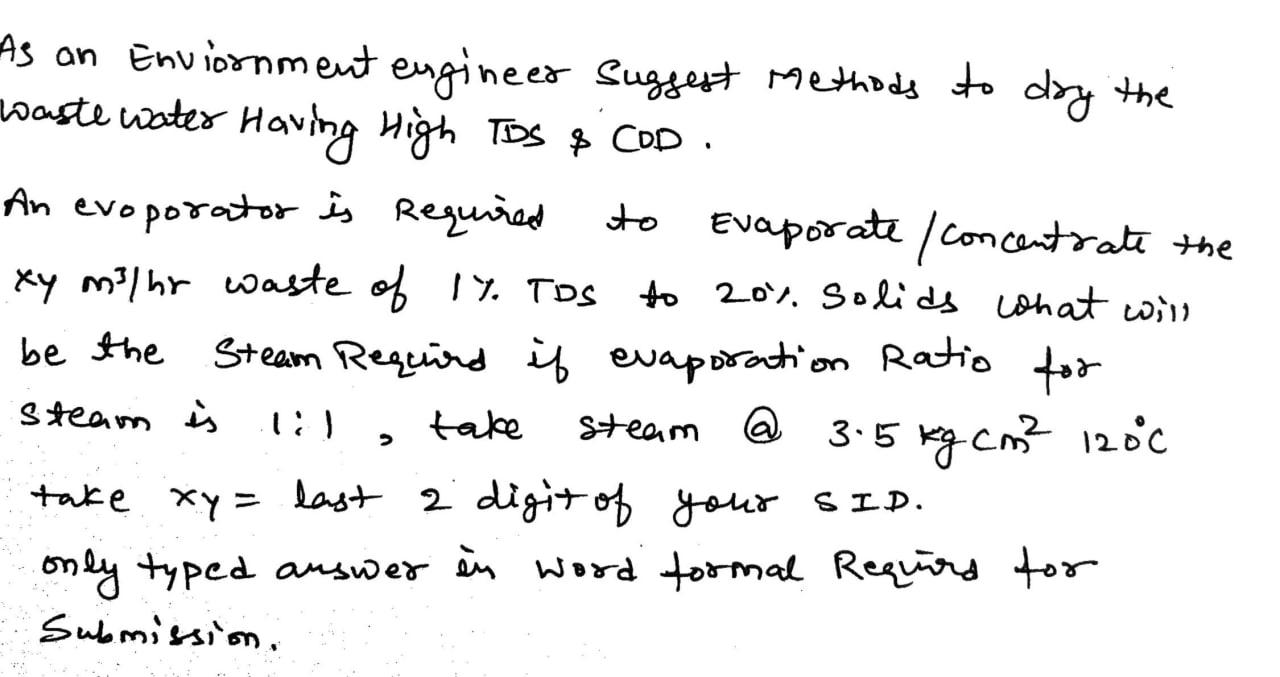 As an Enviornment engineer Suggest Methods to dry the
waste water Having High TDS & COD.
An evoporator is Required to Evaporate / concentrate the
xy m³/hr waste of 1% TDS to 20% Solids what will
be the Steam Requird if evaporation Ratio for
steam is 1:1, take steam @ 3.5 kg cm² 120°C
take xy = last 2 digit of your SID.
only typed answer in word formal Requird for
Submission.